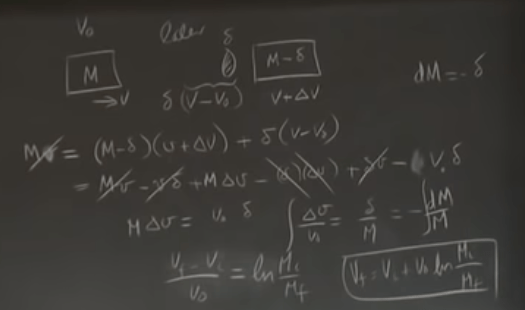 V₀ later δ
M M-δ dM = -δ
→V δ(V-V₀) V+ΔV
Mv = (M-δ)(v+ΔV) + δ(v-V₀)
= Mv - vδ + MΔV - (δ)(ΔV) + δv - V₀δ
MΔv = V₀ δ ∫ Δv/V₀ = δ/M = -∫ dM/M
(V_f - V_i)/V₀ = ln M_i/M_f V_f = V_i + V₀ ln M_i/M_f